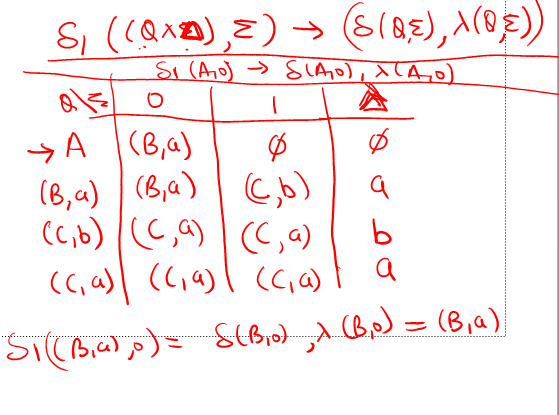 δ1 ((Q×Δ), Σ) → (δ(Q,Σ), λ(Q,Σ))
δ1(A,0) → δ(A,0), λ(A,0)
Q\Σ 0 1 Δ
→ A (B,a) ∅ ∅
(B,a) (B,a) (C,b) a
(C,b) (C,a) (C,a) b
(C,a) (C,a) (C,a) a
δ1((B,a),0) = δ(B,0), λ(B,0) = (B,a)